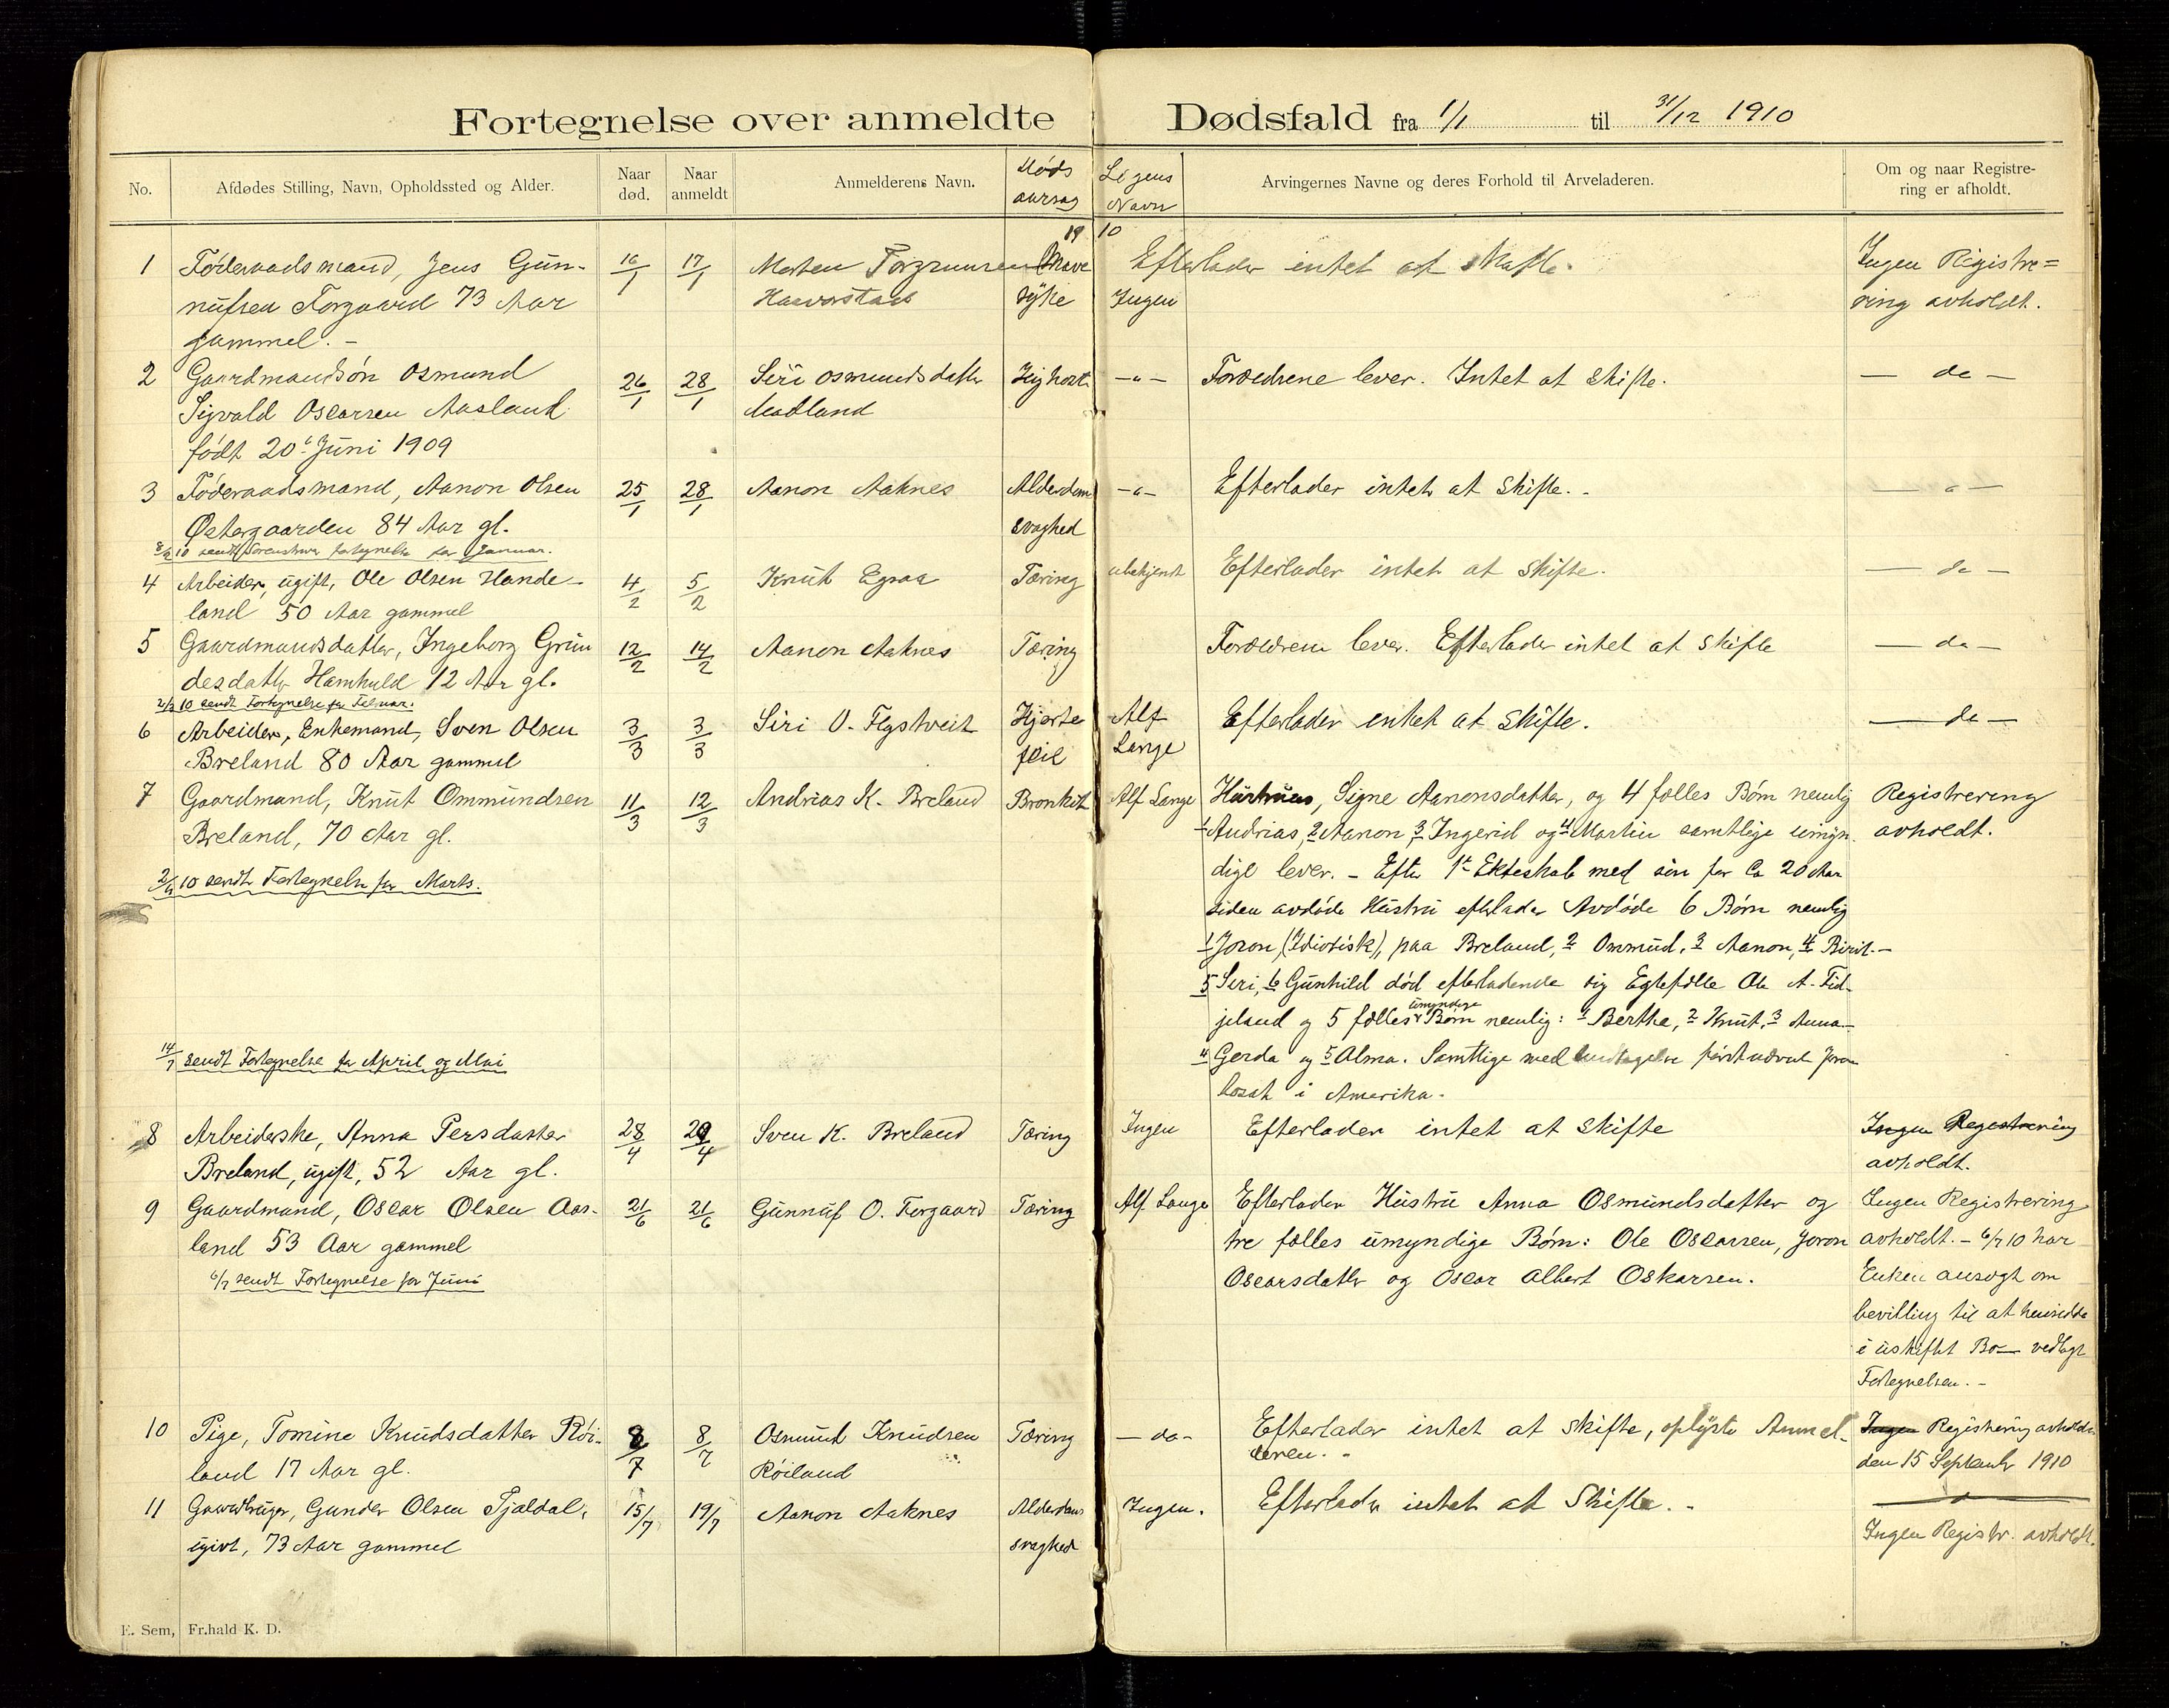 Fortegnelse over anmeldte Dødsfald fra 1/1 til 31/12 1910
No.
Afdødes Stilling, Navn, Opholdssted og Alder.
Naar død.
Naar anmeldt
Anmelderens Navn.
Døds aarsag
Lægens Navn
Arvingernes Navne og deres Forhold til Arveladeren.
Om og naar Registre-
ring er afholdt.
1910
1 Føderaadsmand, Jens Gun- 16/1 17/1 Morten Mave Efterlader intet at skifte. Ingen Registre=
nufsen Torgaard 73 Aar Haverstad syke Ingen ring avholdt.
gammel. -
2 Gaardmandsøn Osmund 26/1 28/1 Siri Osmundsdatter Kighoste -"- Forældrene lever. Intet at skifte. - do -
Sigvald Oscarsen Aasland Aadland
født 20 Juni 1909
3 Føderaadsmand, Aanon Olsen 25/1 28/1 Aanon Aaknes Alderdom -"- Efterlader intet at skifte. - - " -
Østergaarden 84 Aar gl. svaghed
10 sendt Fortegnelse for Januar.
4 Arbeider, ugift, Ole Olsen Hande- 4/2 5/2 Knut Egraa Tæring ubekjendt Efterlader intet at skifte. - do -
land 50 Aar gammel
5 Gaardmandsdatter, Ingeborg Grun 12/2 14/2 Aanon Aaknes Tæring Forældrene lever. Efterlader intet at skifte - do -
desdatter Hamhuld 12 Aar gl.
2/3 10 sendt Fortegnelse for Februar.
6 Arbeider, Enkemand, Sven Olsen 3/3 3/3 Siri O. Flystveit Hjerte Alf Efterlader intet at skifte. - do -
Breland 80 Aar gammel feil Lange
7 Gaardmand, Knut Ommundsen 11/3 12/3 Andrias K. Breland Bronkit Alf Lange Hustruen, Signe Aanonsdatter, og 4 fælles Børn nemlig Registrering
Breland, 70 Aar gl. 1 Andrias, 2 Aanon, 3 Ingerid og 4 Martin samtlige umyn- avholdt.
2/4 10 sendt Fortegnelse for Marts. dige lever. - Efter 1st Ekteskab med sin for Ca 20 Aar
siden avdøde Hustru efterlader Avdøde 6 Børn nemlig
1 Joron, (Idiotisk), paa Breland, 2 Ommund, 3 Aanon, 4 Birit. -
5 Siri, 6 Gunhild død efterladende sig Egtefælle Ole A. Fid-
jeland og 5 fælles umyndige Børn nemlig: 1 Berthe, 2 Knut, 3 Anna -
14/7 sendt Fortegnelse for April og Mai 4 Gerda og 5 Alma. Samtlige med Joron
bosat i Amerika.
8 Arbeiderske, Anna Persdatter 28/4 29/4 Sven K. Breland Tæring Ingen Efterlader intet at skifte Ingen Registrering
Breland, ugift, 52 Aar gl. avholdt.
9 Gaardmand, Oscar Olsen Aas- 21/6 21/6 Gunnuf O. Torgaard Tæring Alf Lange Efterlader Hustru Anna Osmundsdatter og Ingen Registrering
land 53 Aar gammel tre fælles umyndige Børn: Ole Oscarsen, Joron avholdt. - 6/7 10 har
6/7 sendt Fortegnelse for Juni Oscarsdatter og Oscar Albert Oskarsen. Enken ansøgt om
bevilling til at hensidde
i uskiftet Bo - vedlagt
Fortegnelsen. -
10 Pige, Tomine Knudsdatter Røi- 8/7 8/7 Osmund Knudsen Tæring - do - Efterlader intet at skifte, oplyste Anmel- Ingen Registrering avholdt
land 17 Aar gl. Røiland deren. - den 15 September 1910
11 Gaardbruger, Gunder Olsen Tjaldal, 15/7 19/7 Aanon Aaknes Alderdoms Ingen. Efterlader intet at Skifte. -
ugivt, 73 Aar gammel svaghed Ingen Registr. avholdt.
E. Sem, Fr.hald K. D.